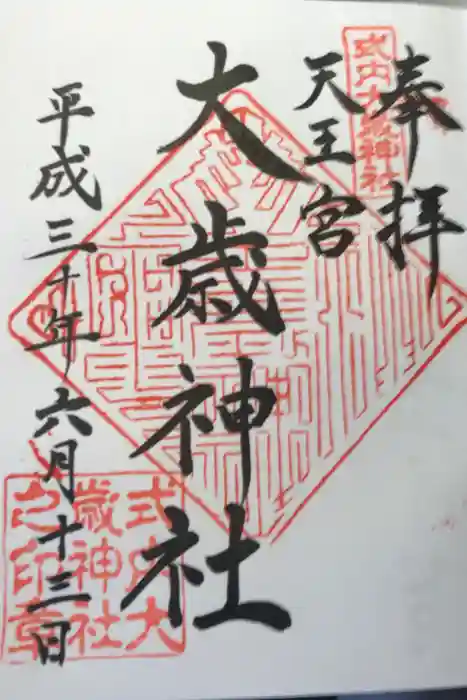 奉拝
式内大歳神社
天王宮
大歳神社
平成三十年六月十三日
式内大
歳神社
之印章